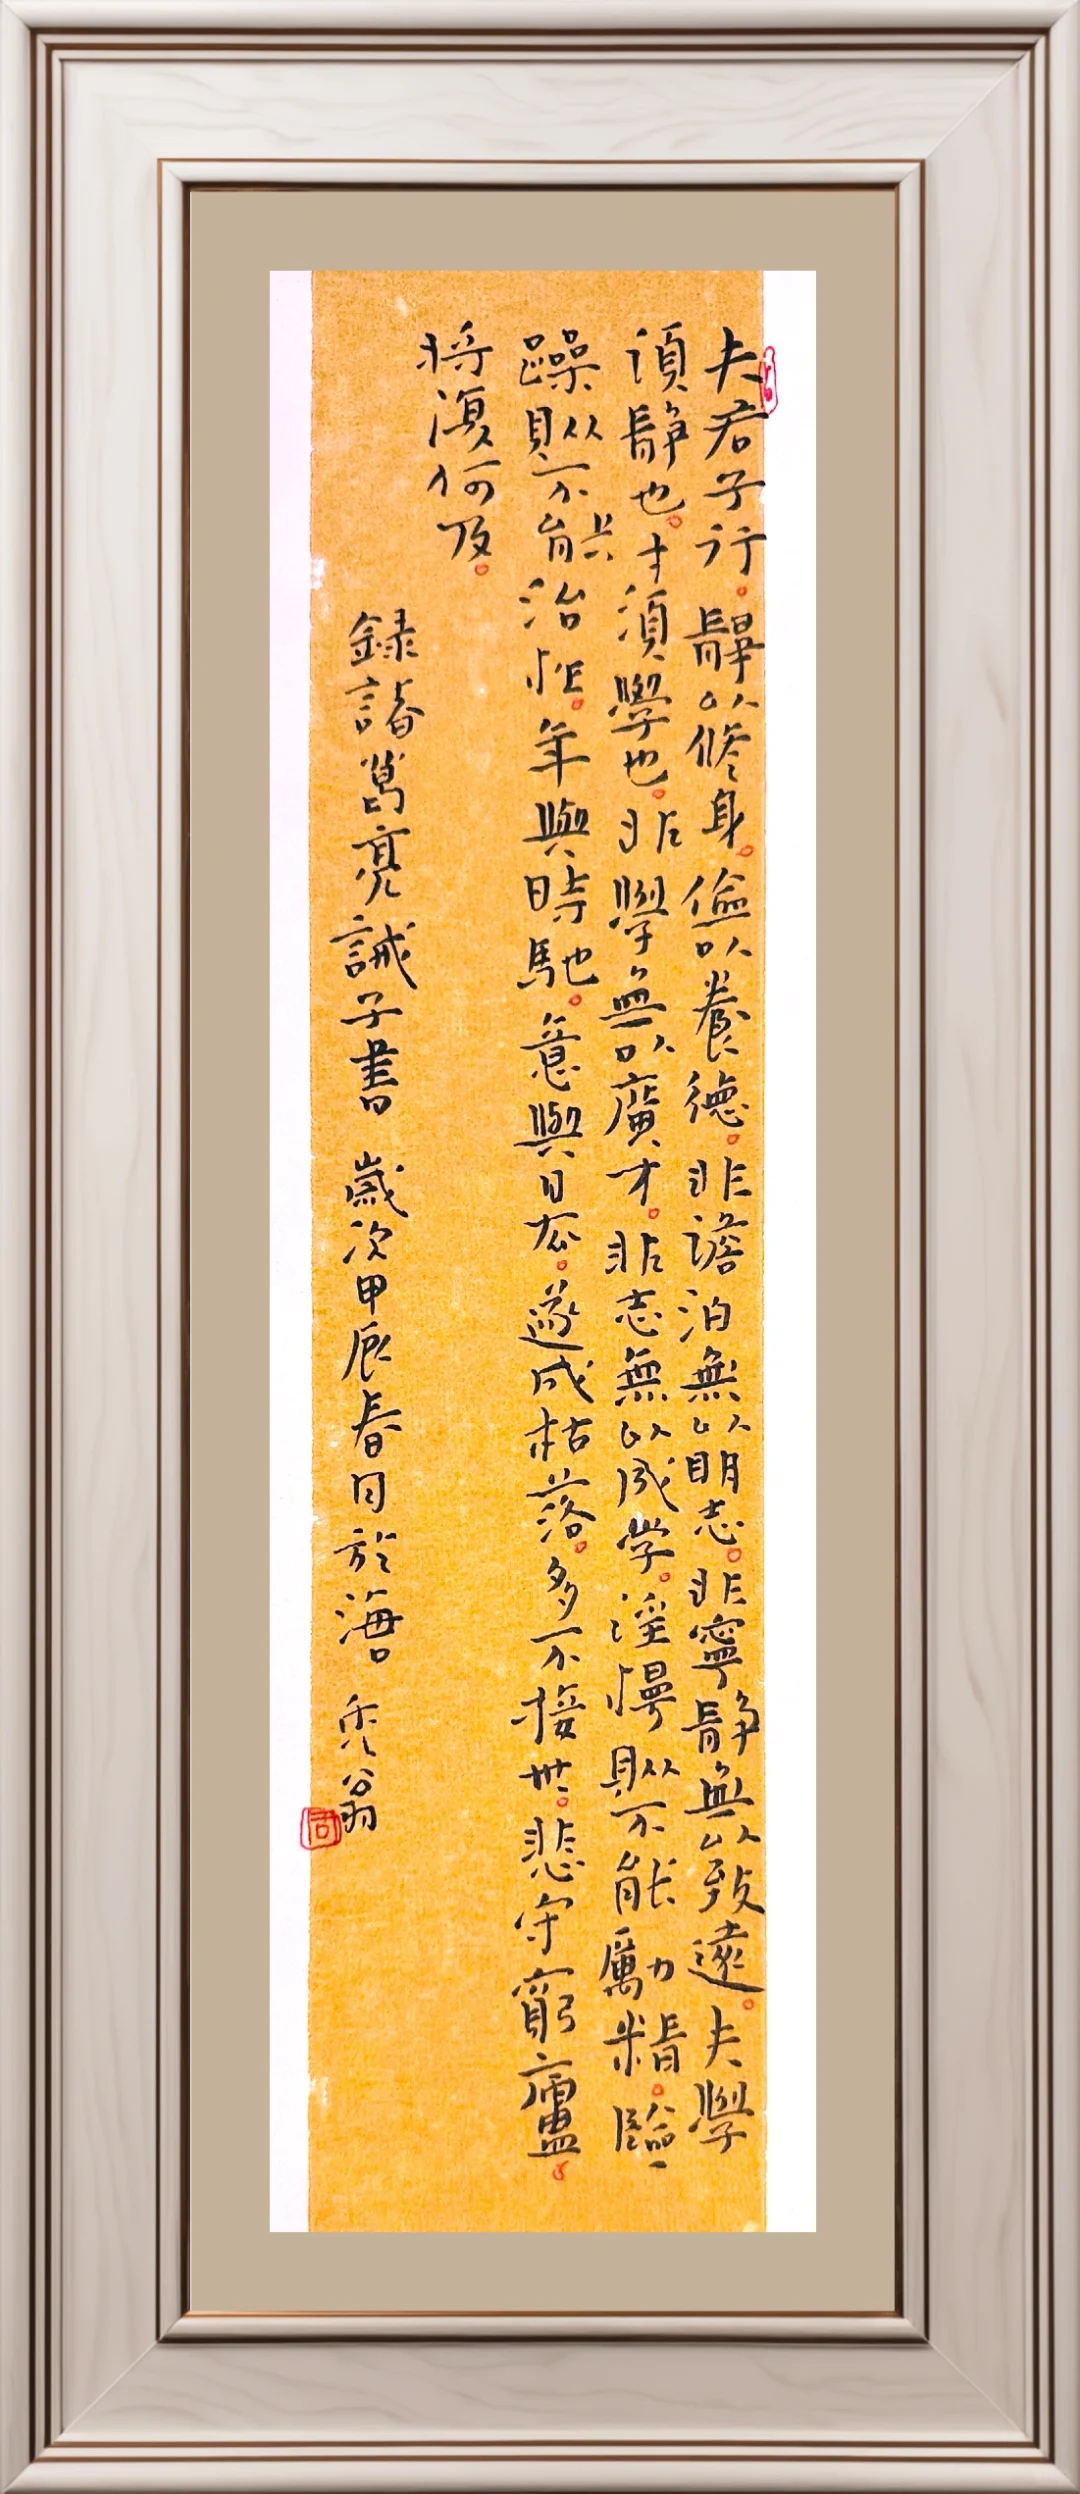 夫君子行。靜以修身。儉以養德。非澹泊無以明志。非寧靜無以致遠。夫學
須靜也。才須學也。非學無以廣才。非志無以成学。淫慢則不能勵精。險
躁則不能治性。年與時馳。意與日去。遂成枯落。多不接世。悲守窮廬。
將復何及。
録諸葛亮誡子書 歲次甲辰春日於海口 禿翁